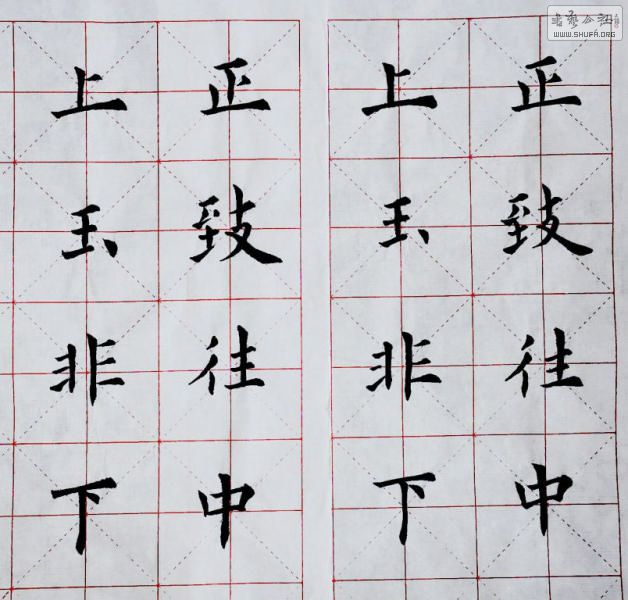 正致往中
上玉非下
正致往中
上玉非下
WWW.SHUFA.ORG